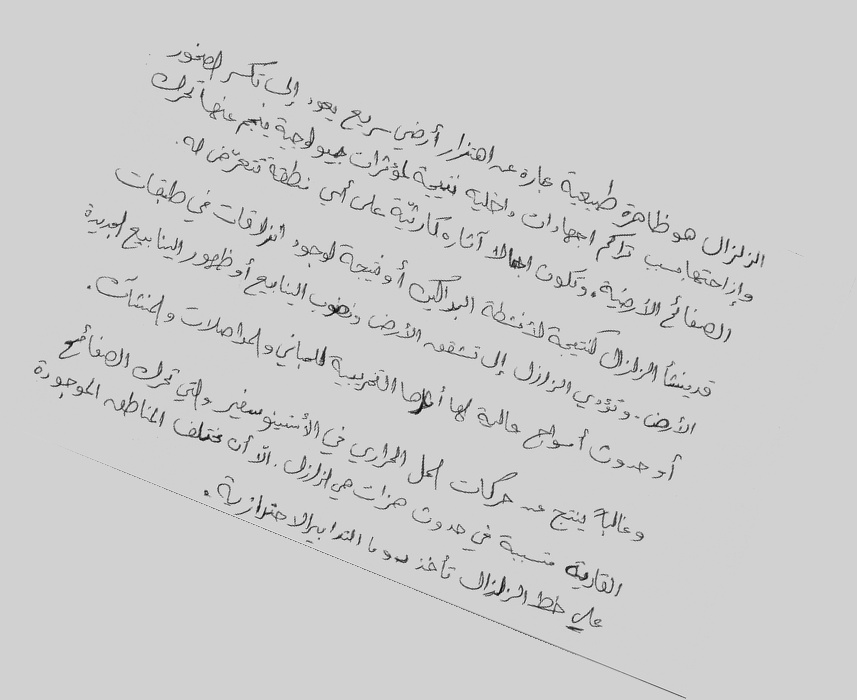 الزلزال هو ظاهرة طبيعية عبارة عن اهتزاز أرضي سريع يعود إلى تكسر الصخور
وإزاحتها بسبب تراكم اجهادات داخلية نتيجة لمؤثرات جيولوجية ينجم عنها تحرك
الصفائح الأرضية. وتكون اجمالا آثاره كارثيّة على أي نطقة تتعرّض له.
قد ينشأ الزلزال كنتيجة لأنشطة البراكين أو نتيجة لوجود انزلاقات في طبقات
الأرض. وتؤدي الزلازل إلى تشقق الأرض ونضوب الينابيع أو ظهور الينابيع الجديدة
أو حدوث أمواج عالية لها أثارها التخريبية للمباني والمواصلات والمنشآت.
وغالباً ينتج عن حركات الحمل الحراري في الأستينوسفير والتي تحرك الصفائح
القارية متسببة في حدوث هزات هي الزلازل. الّا أن مختلف المناطق الموجودة
على خط الزلزال تأخذ دوما التدابير الاحترازية.